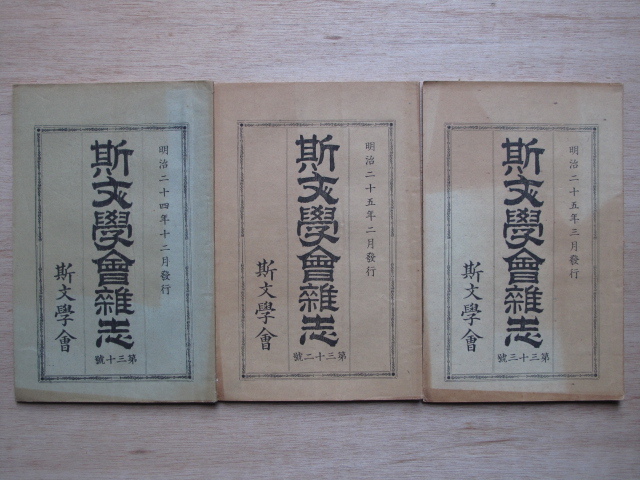 明治二十四年十二月發行
斯文學會雜志
第三十號
斯文學會
明治二十五年二月發行
斯文學會雜志
第三十二號
斯文學會
明治二十五年三月發行
斯文學會雜志
第三十三號
斯文學會